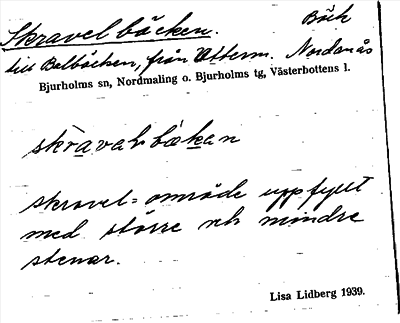 Skravelbäcken. Bäck
till Balbäcken, från Ottern. Nordanås
Bjurholms sn, Nordmaling o. Bjurholms tg, Västerbottens l.
skràvalbäkan
skravel = område uppfyllt
med större och mindre
stenar.
Lisa Lidberg 1939.